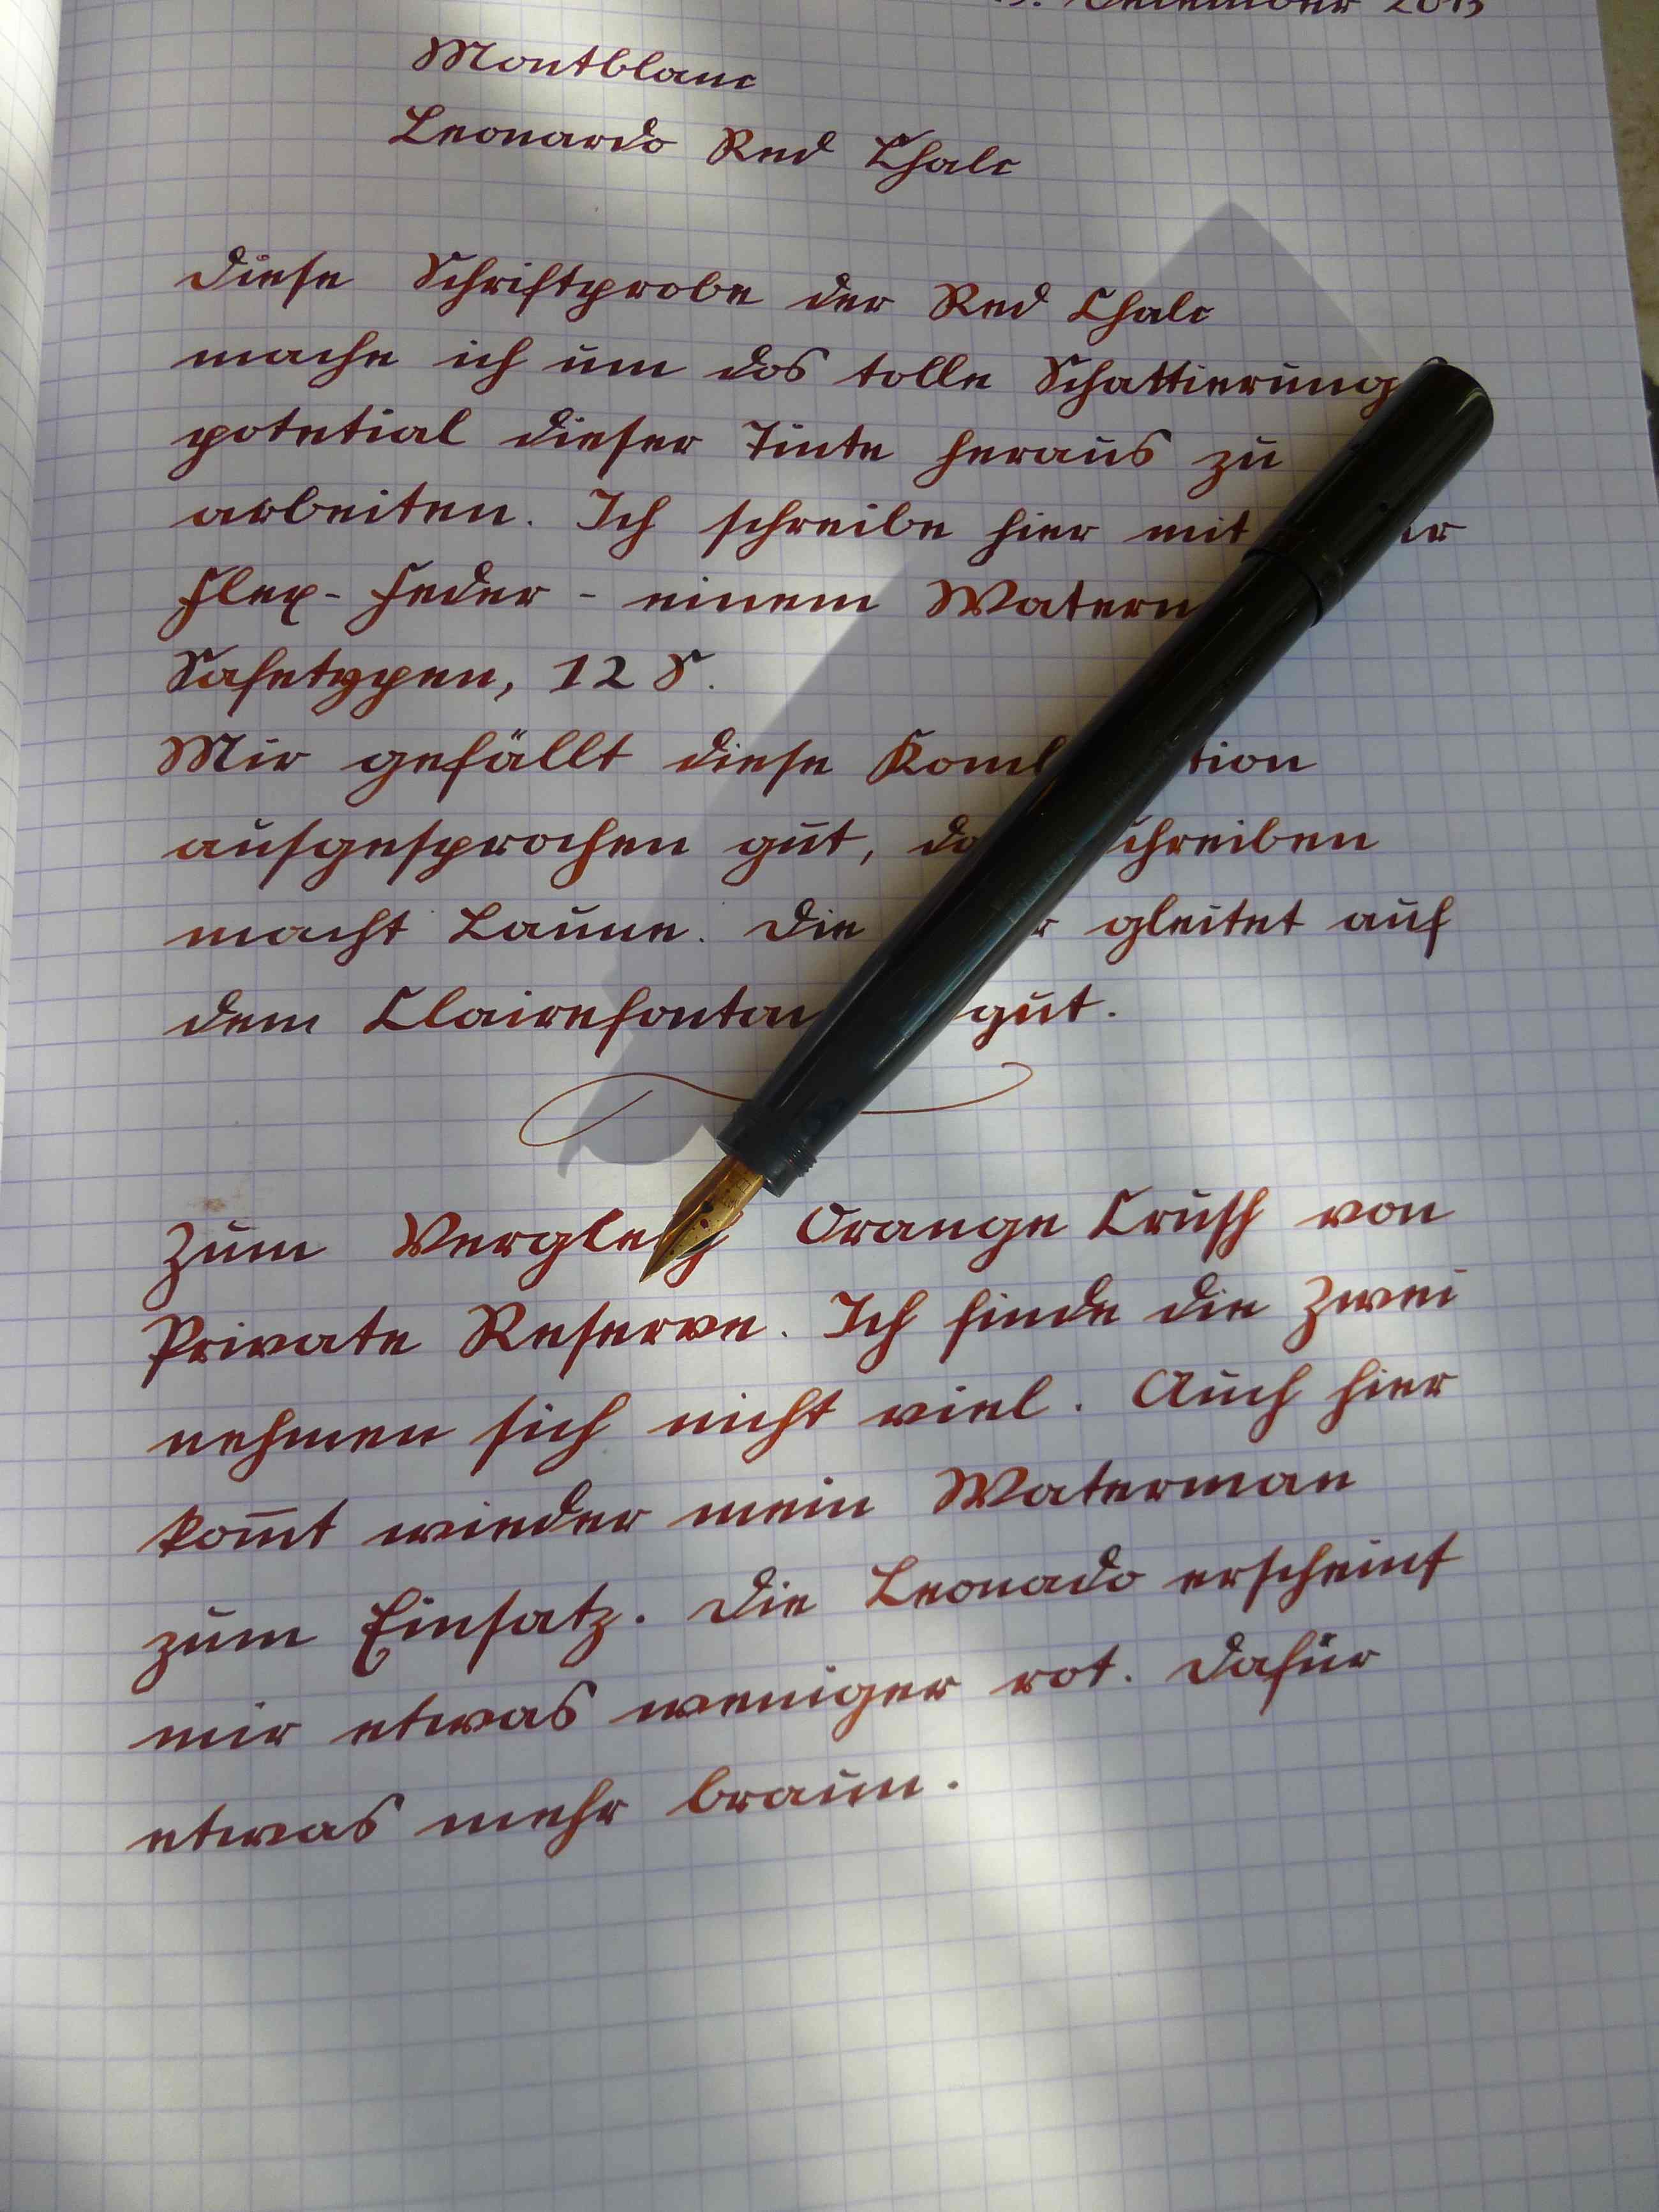 Dezember 2013
Montblanc
Leonardo Red Chalc
Diese Schriftprobe der Red Chalc
mache ich um das tolle Schattierung
potetial dieser Tinte heraus zu
arbeiten. Ich schreibe hier mit
Flex-Feder - einem
Safetypen, 12 S.
Mir gefällt diese
ausgesprochen gut,
macht Laune. Die gleitet auf
dem gut.
Zum Orange Crush von
Private Reserve. Ich finde die Zwei
nehmen sich nicht viel. Auch hier
kom̄t wieder mein Waterman
zum Einsatz. Die Leonado erscheint
mir etwas weniger rot. Dafür
etwas mehr braun.